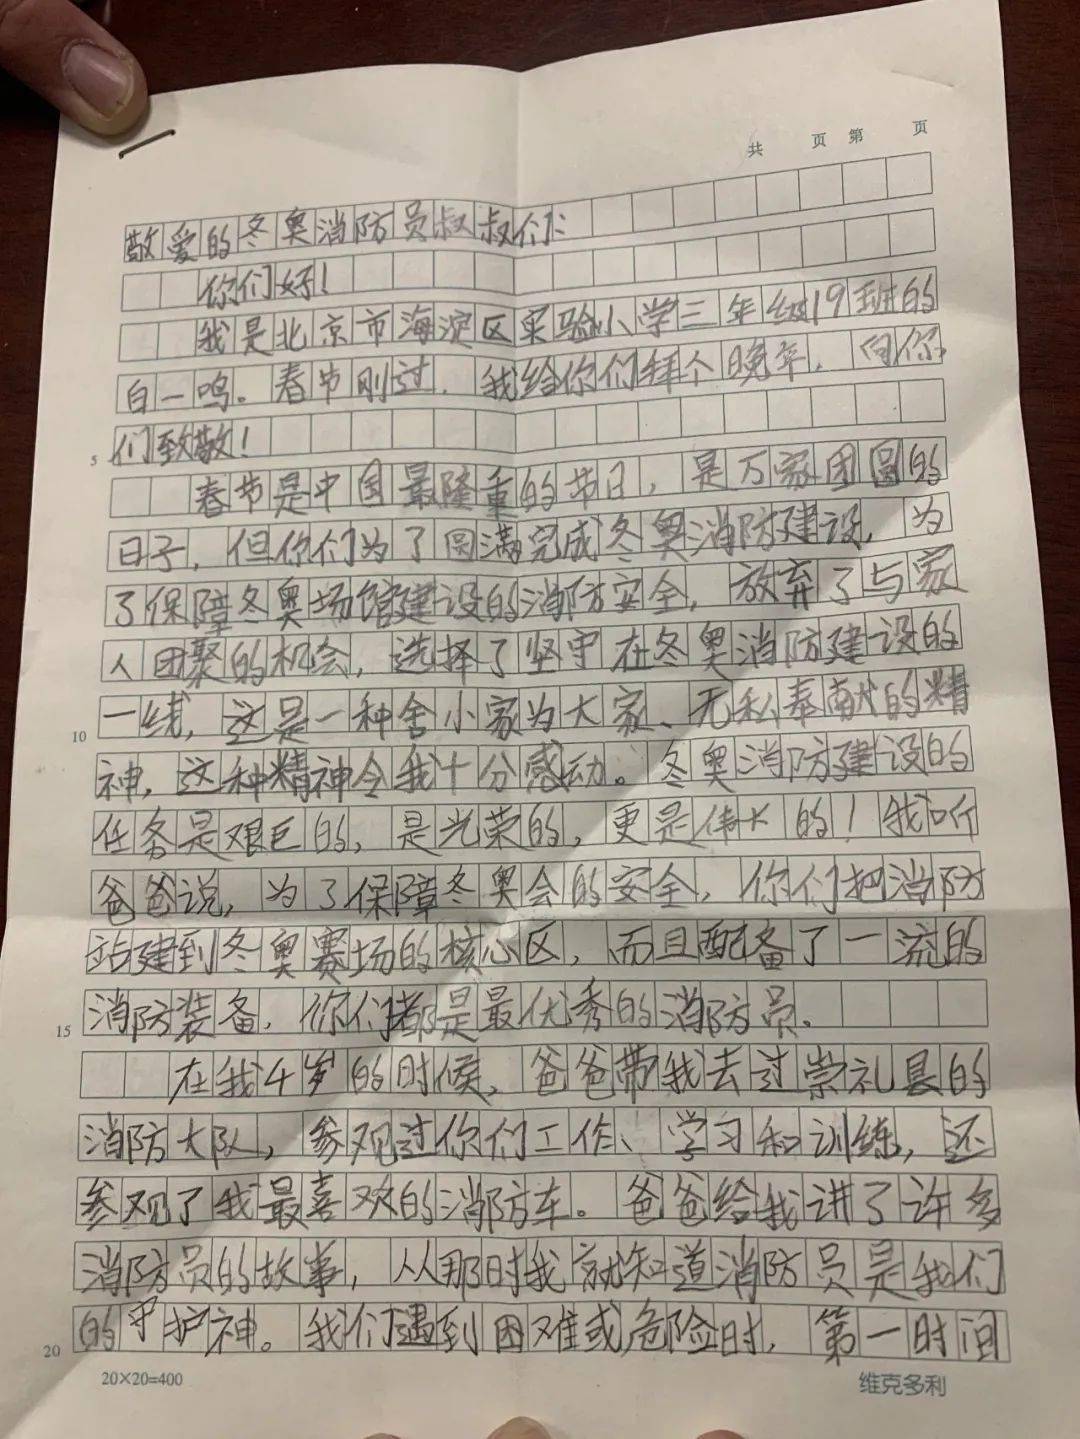 共 页 第 页
敬爱的冬奥消防员叔叔们：
你们好！
我是北京市海淀区实验小学三年级19班的
白一鸣。春节刚过，我给你们拜个晚年，向你
们致敬！
5
春节是中国最隆重的节日，是万家团圆的
日子，但你们为了圆满完成冬奥消防建设，为
了保障冬奥场馆建设的消防安全，放弃了与家
人团聚的机会，选择了坚守在冬奥消防建设的
一线，这是一种舍小家为大家、无私奉献的精
10
神，这种精神令我十分感动。冬奥消防建设的
任务是艰巨的，是光荣的，更是伟大的！我听
爸爸说，为了保障冬奥会的安全，你们把消防
站建到冬奥赛场的核心区，而且配备了一流的
消防装备，你们都是最优秀的消防员。
15
在我4岁的时候，爸爸带我去过崇礼县的
消防大队，参观过你们工作、学习和训练，还
参观了我最喜欢的消防车。爸爸给我讲了许多
消防员的故事，从那时我就知道消防员是我们
的守护神。我们遇到困难或危险时，第一时间
20
20×20=400
维克多利